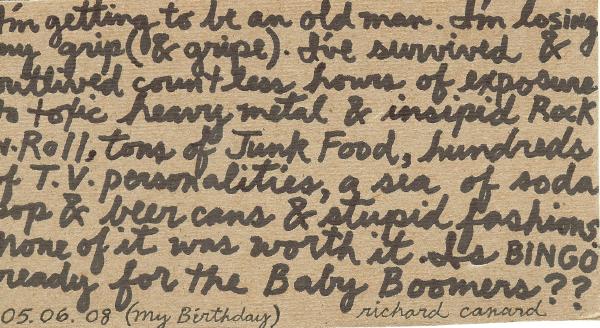 I'm getting to be an old man. I'm losing
my grip (& gripe). I've survived &
outlived countless hours of exposure
to toxic heavy metal & insipid Rock
n. Roll, tons of Junk Food, hundreds
of T.V. personalities, a sea of soda
pop & beer cans & stupid fashions
none of it was worth it. Is BINGO
ready for the Baby Boomers??
05.06.08 (my Birthday) richard canard